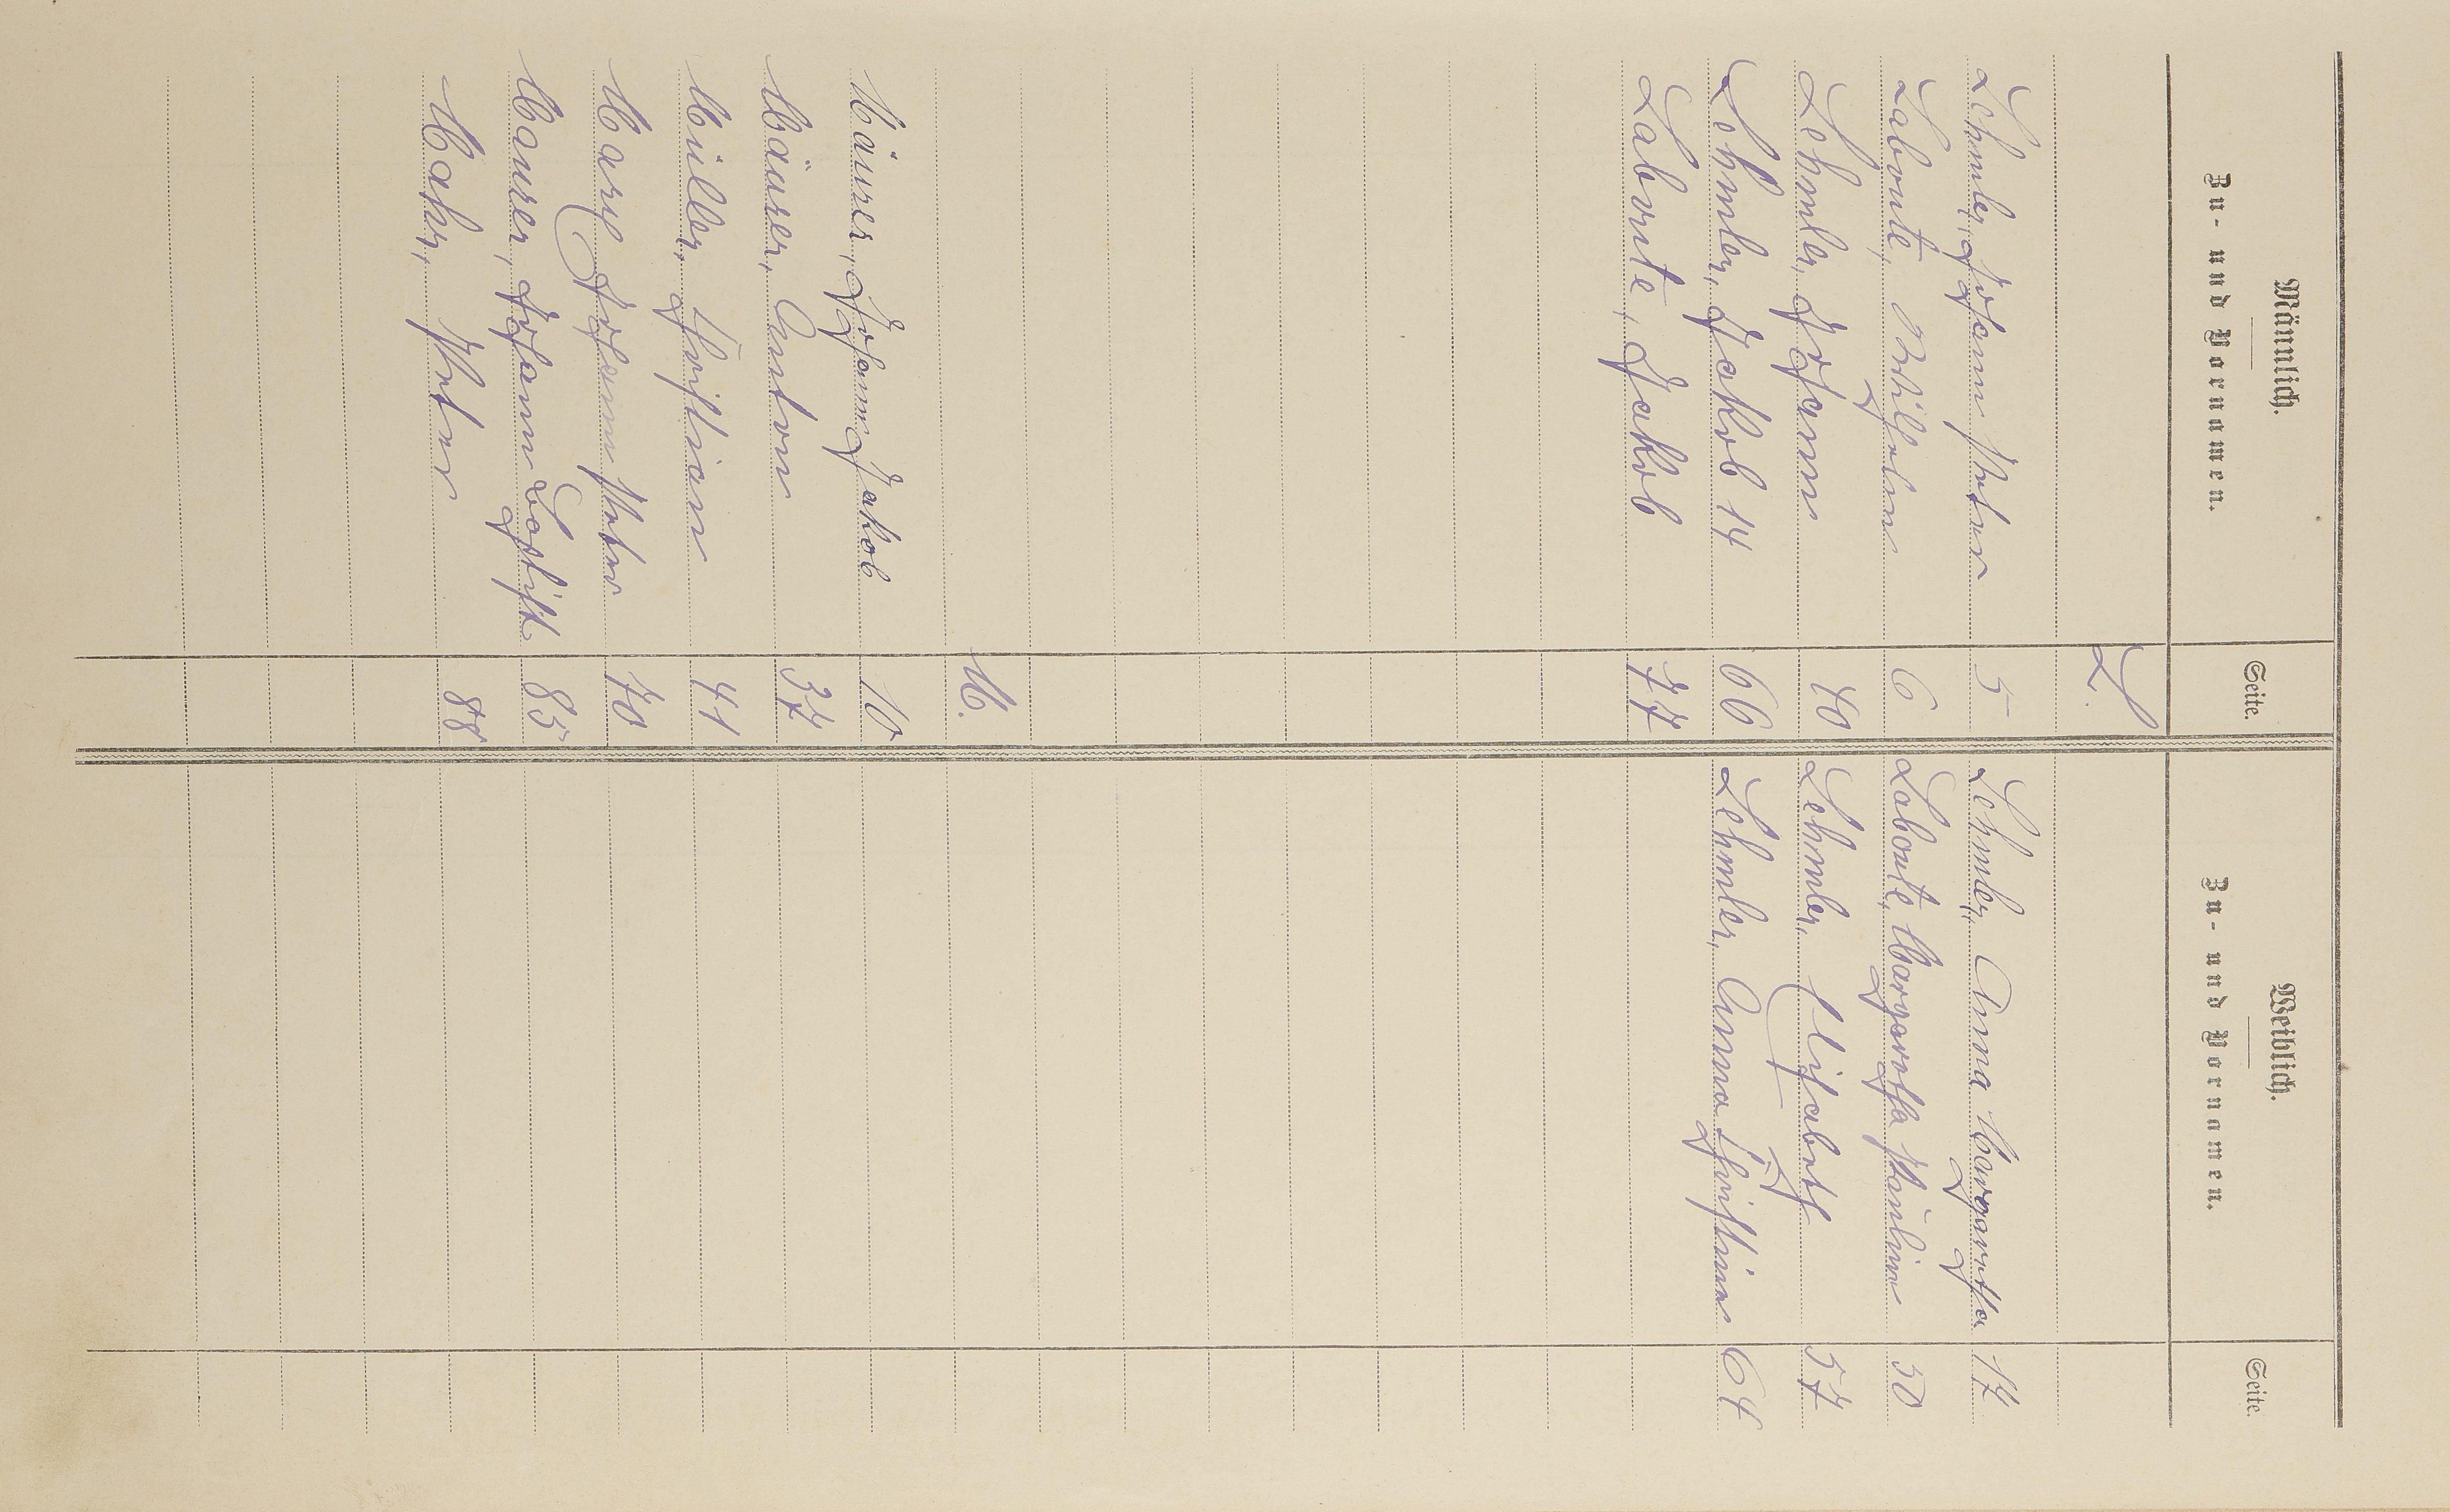 Männlich. Weiblich.
Zu- und Vornamen. Seite. Zu- und Vornamen. Seite.
L.
Lehmler, Johann Peter 5 Lehmler, Anna Margaretha 17
Labonte, Wilhelm 6 Labonte, Margaretha Paulina 50
Lehmler, Johann 40 Lehmler, Elisabeth 57
Lehmler, Jakob 14 66 Lehmler, Anna Christina 64
Labonte, Jakob 77
M.
Mäurer, Johann Jakob 10
Mäurer, Anton 37
Müller, Christian 41
Marx Johann Peter 70
Maurer, Johann Baptist 85
Mohr, Peter 88